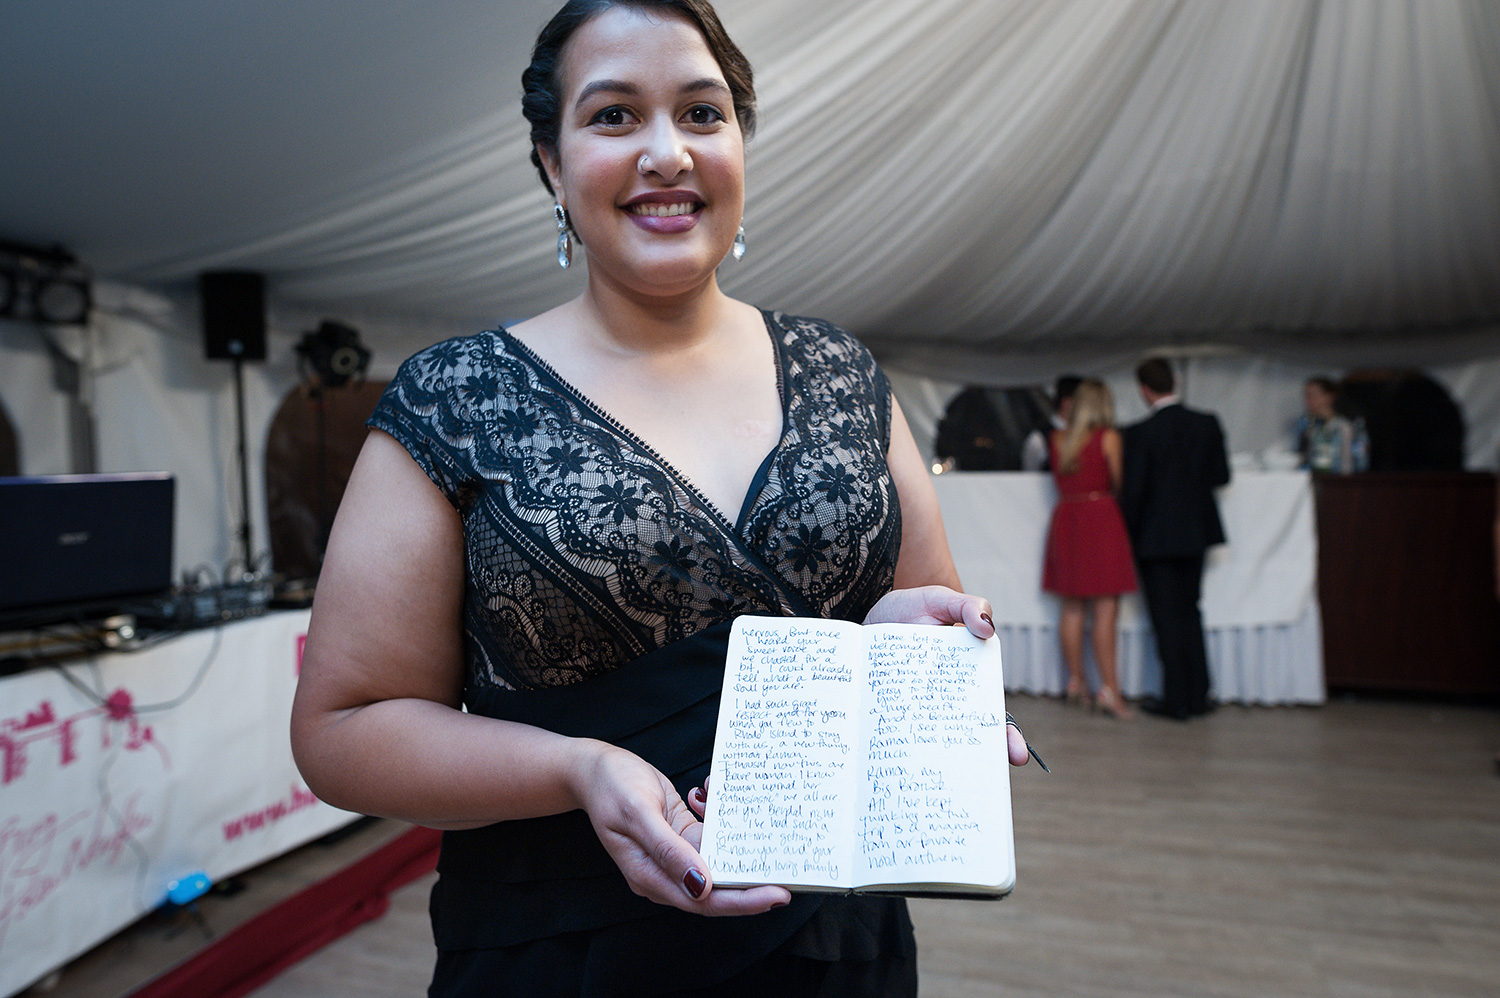 nervous, But once
I heard your
sweet voice and
we chatted for a
bit, I could already
tell what a beautiful
soul you are.
I had such great
respect for you
when you flew to
Rhode Island to stay
with us, a new family,
without Ramon.
I thought now this one
Brave woman. I know
Ramon warned her
"enthusiastic" we all are
But you Beyond right
in. I've had such a
great time getting to
know you and your
wonderfully loving family
I have felt so
welcomed in your
home and look
forward to spending
more time with you.
you are so generous,
easy to talk to
you, and have
a huge heart.
And so Beautiful
too. I see why
Ramon loves you so
much.
Ramon, my
Big Brother.
All I've kept
thinking on this
trip is a mantra
from our favorite
hood anthem
www.h